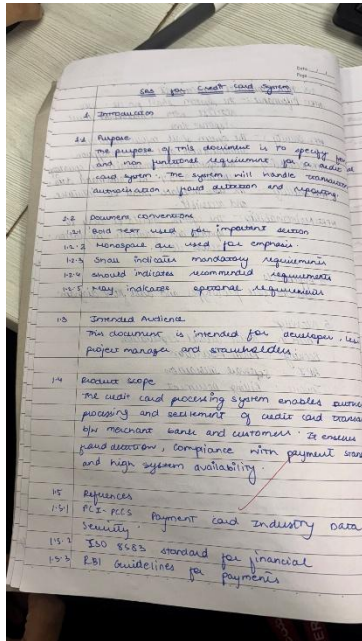 Date
Page
SRS for Credit Card System
1. Introduction
1.1 Purpose
The purpose of this document is to specify
and non functional requirement for a credit
card system. The system will handle transaction
authorisation, fraud detection and reporting.
1.2 Document conventions
1.2.1 Bold text used for important section
1.2.2 Monospace are used for emphasis.
1.2.3 Shall indicates mandatory requirements
1.2.4 should indicates recommended requirements
1.2.5 May indicates optional requirements
1.3 Intended Audience
This document is intended for developer,
project manager and stakeholders.
1.4 Product scope
The credit card processing system enables
processing and settlement of credit card
b/w merchant bank and customers. It ensures
fraud detection, compliance with payment
and high system availability.
1.5 References
1.5.1 Payment card Industry Data
Security.
1.5.2 ISO 8583 standard for financial
1.5.3 RBI Guidelines for payments